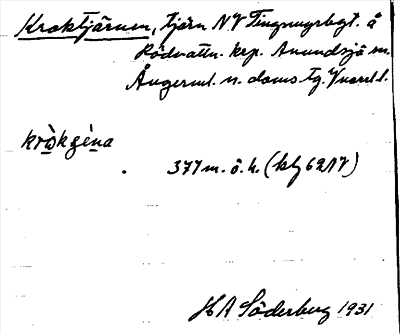 Kroktjärnen, tjärn NV Tingmyrbgt. å
Rödvattn. krp. Anundsjö sn.
Ångerml. n. doms tg. Vnorrl. l.
krɷ̀kǥèna
377 m. ö. h. (blj 62 NV)
H A Söderberg 1931